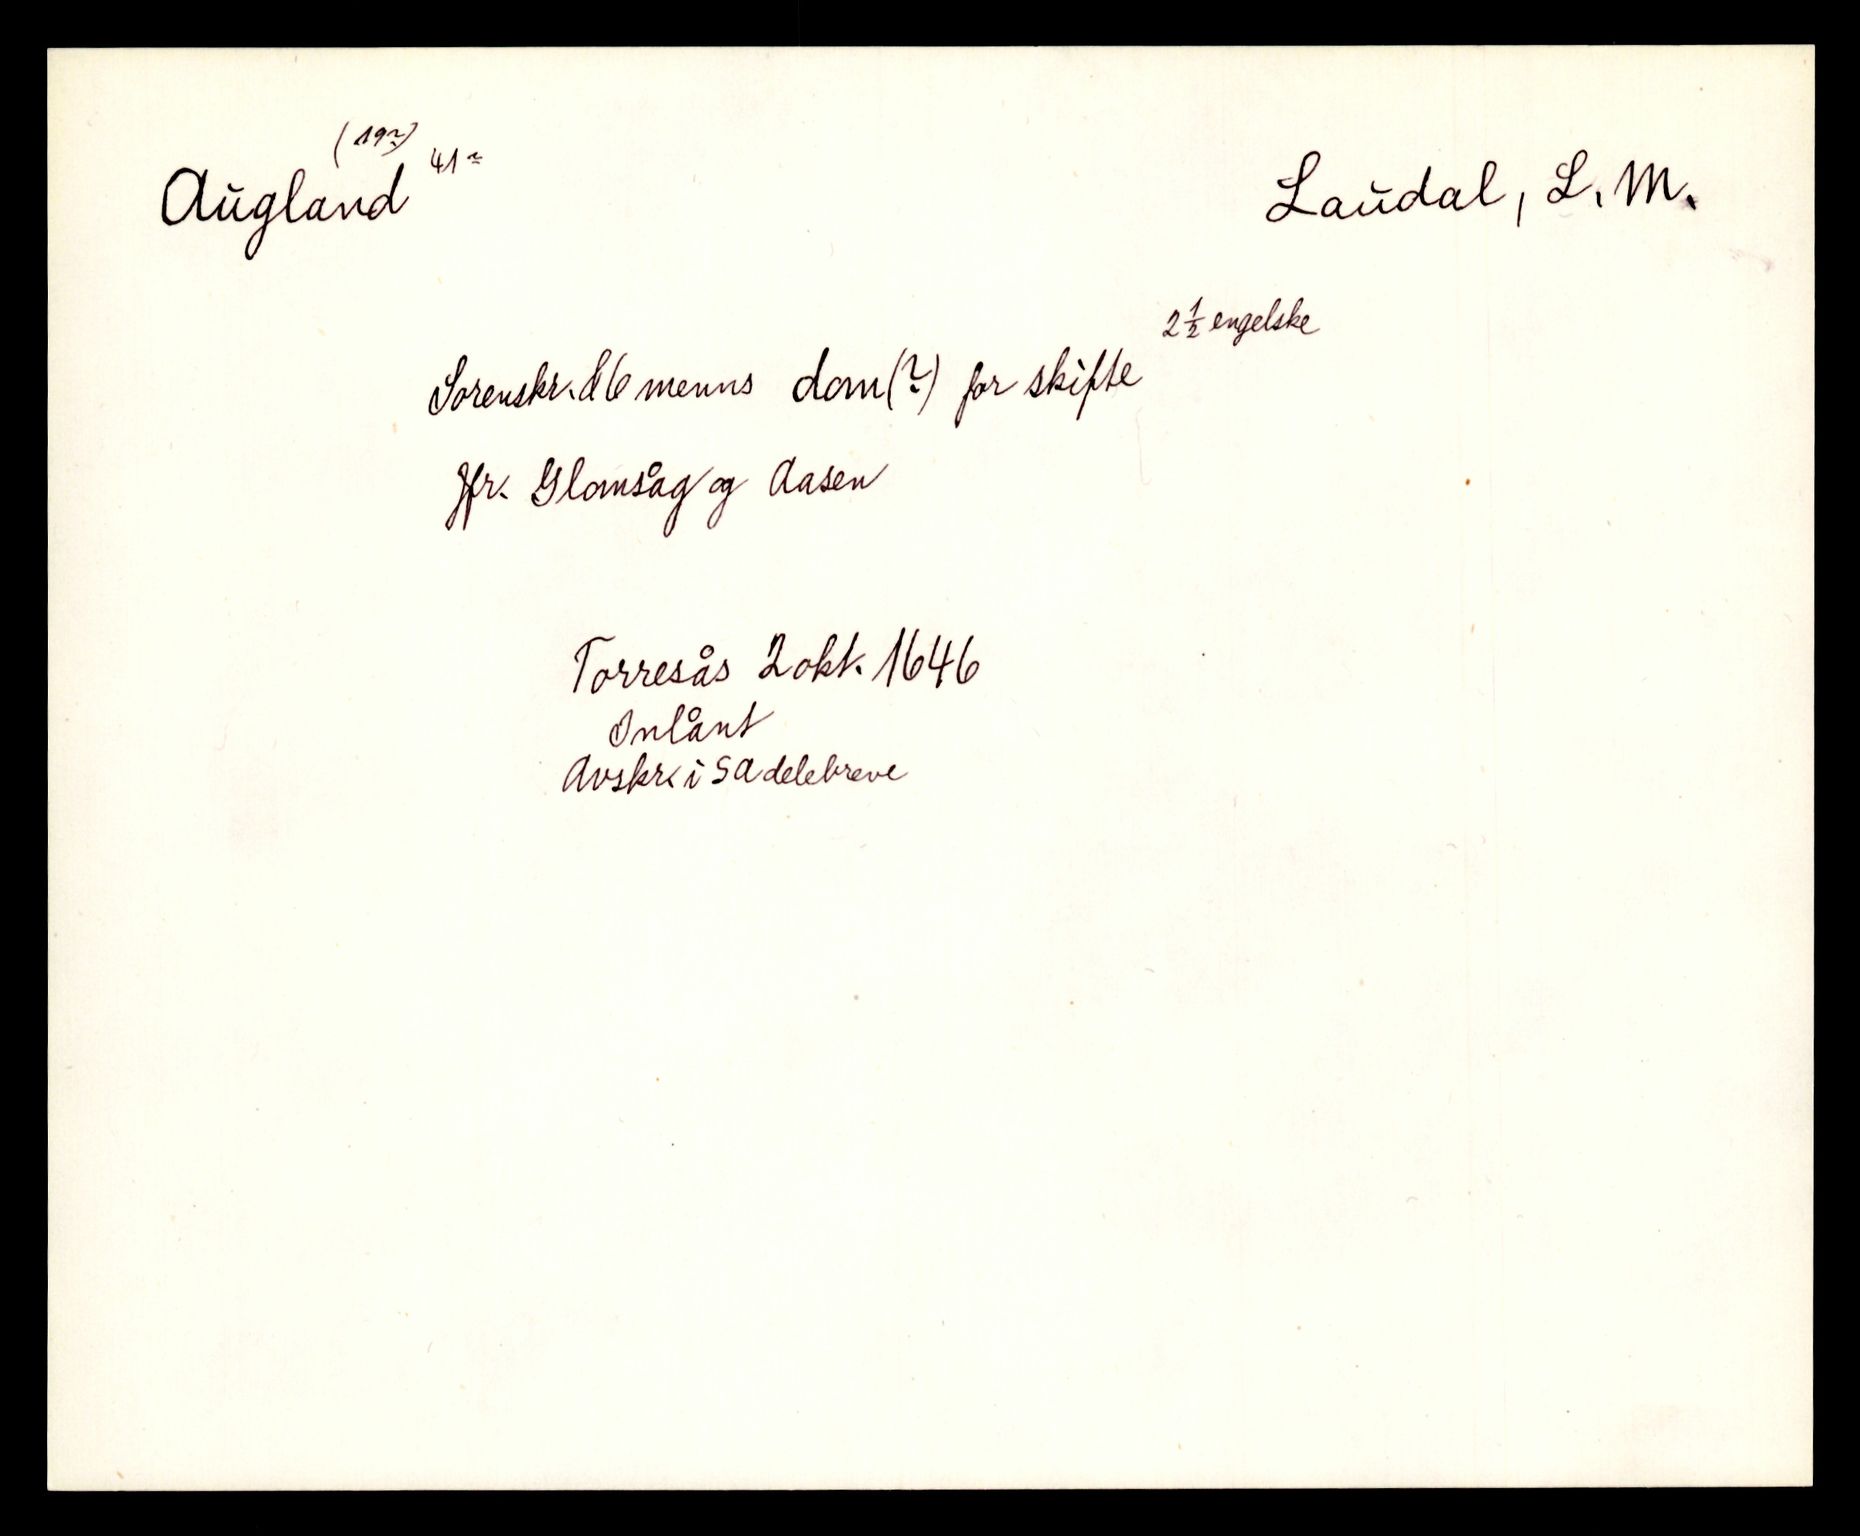 (19?)
Augland 41? Laudal, L. M.
2 1/2 engelske
Sorenskr. & 6 menns dom(?) for skifte
Jfr. Glomsåg og Aasen
Torresås 2 okt. 1646
Innlånt
Avskr. i SAdelebreve